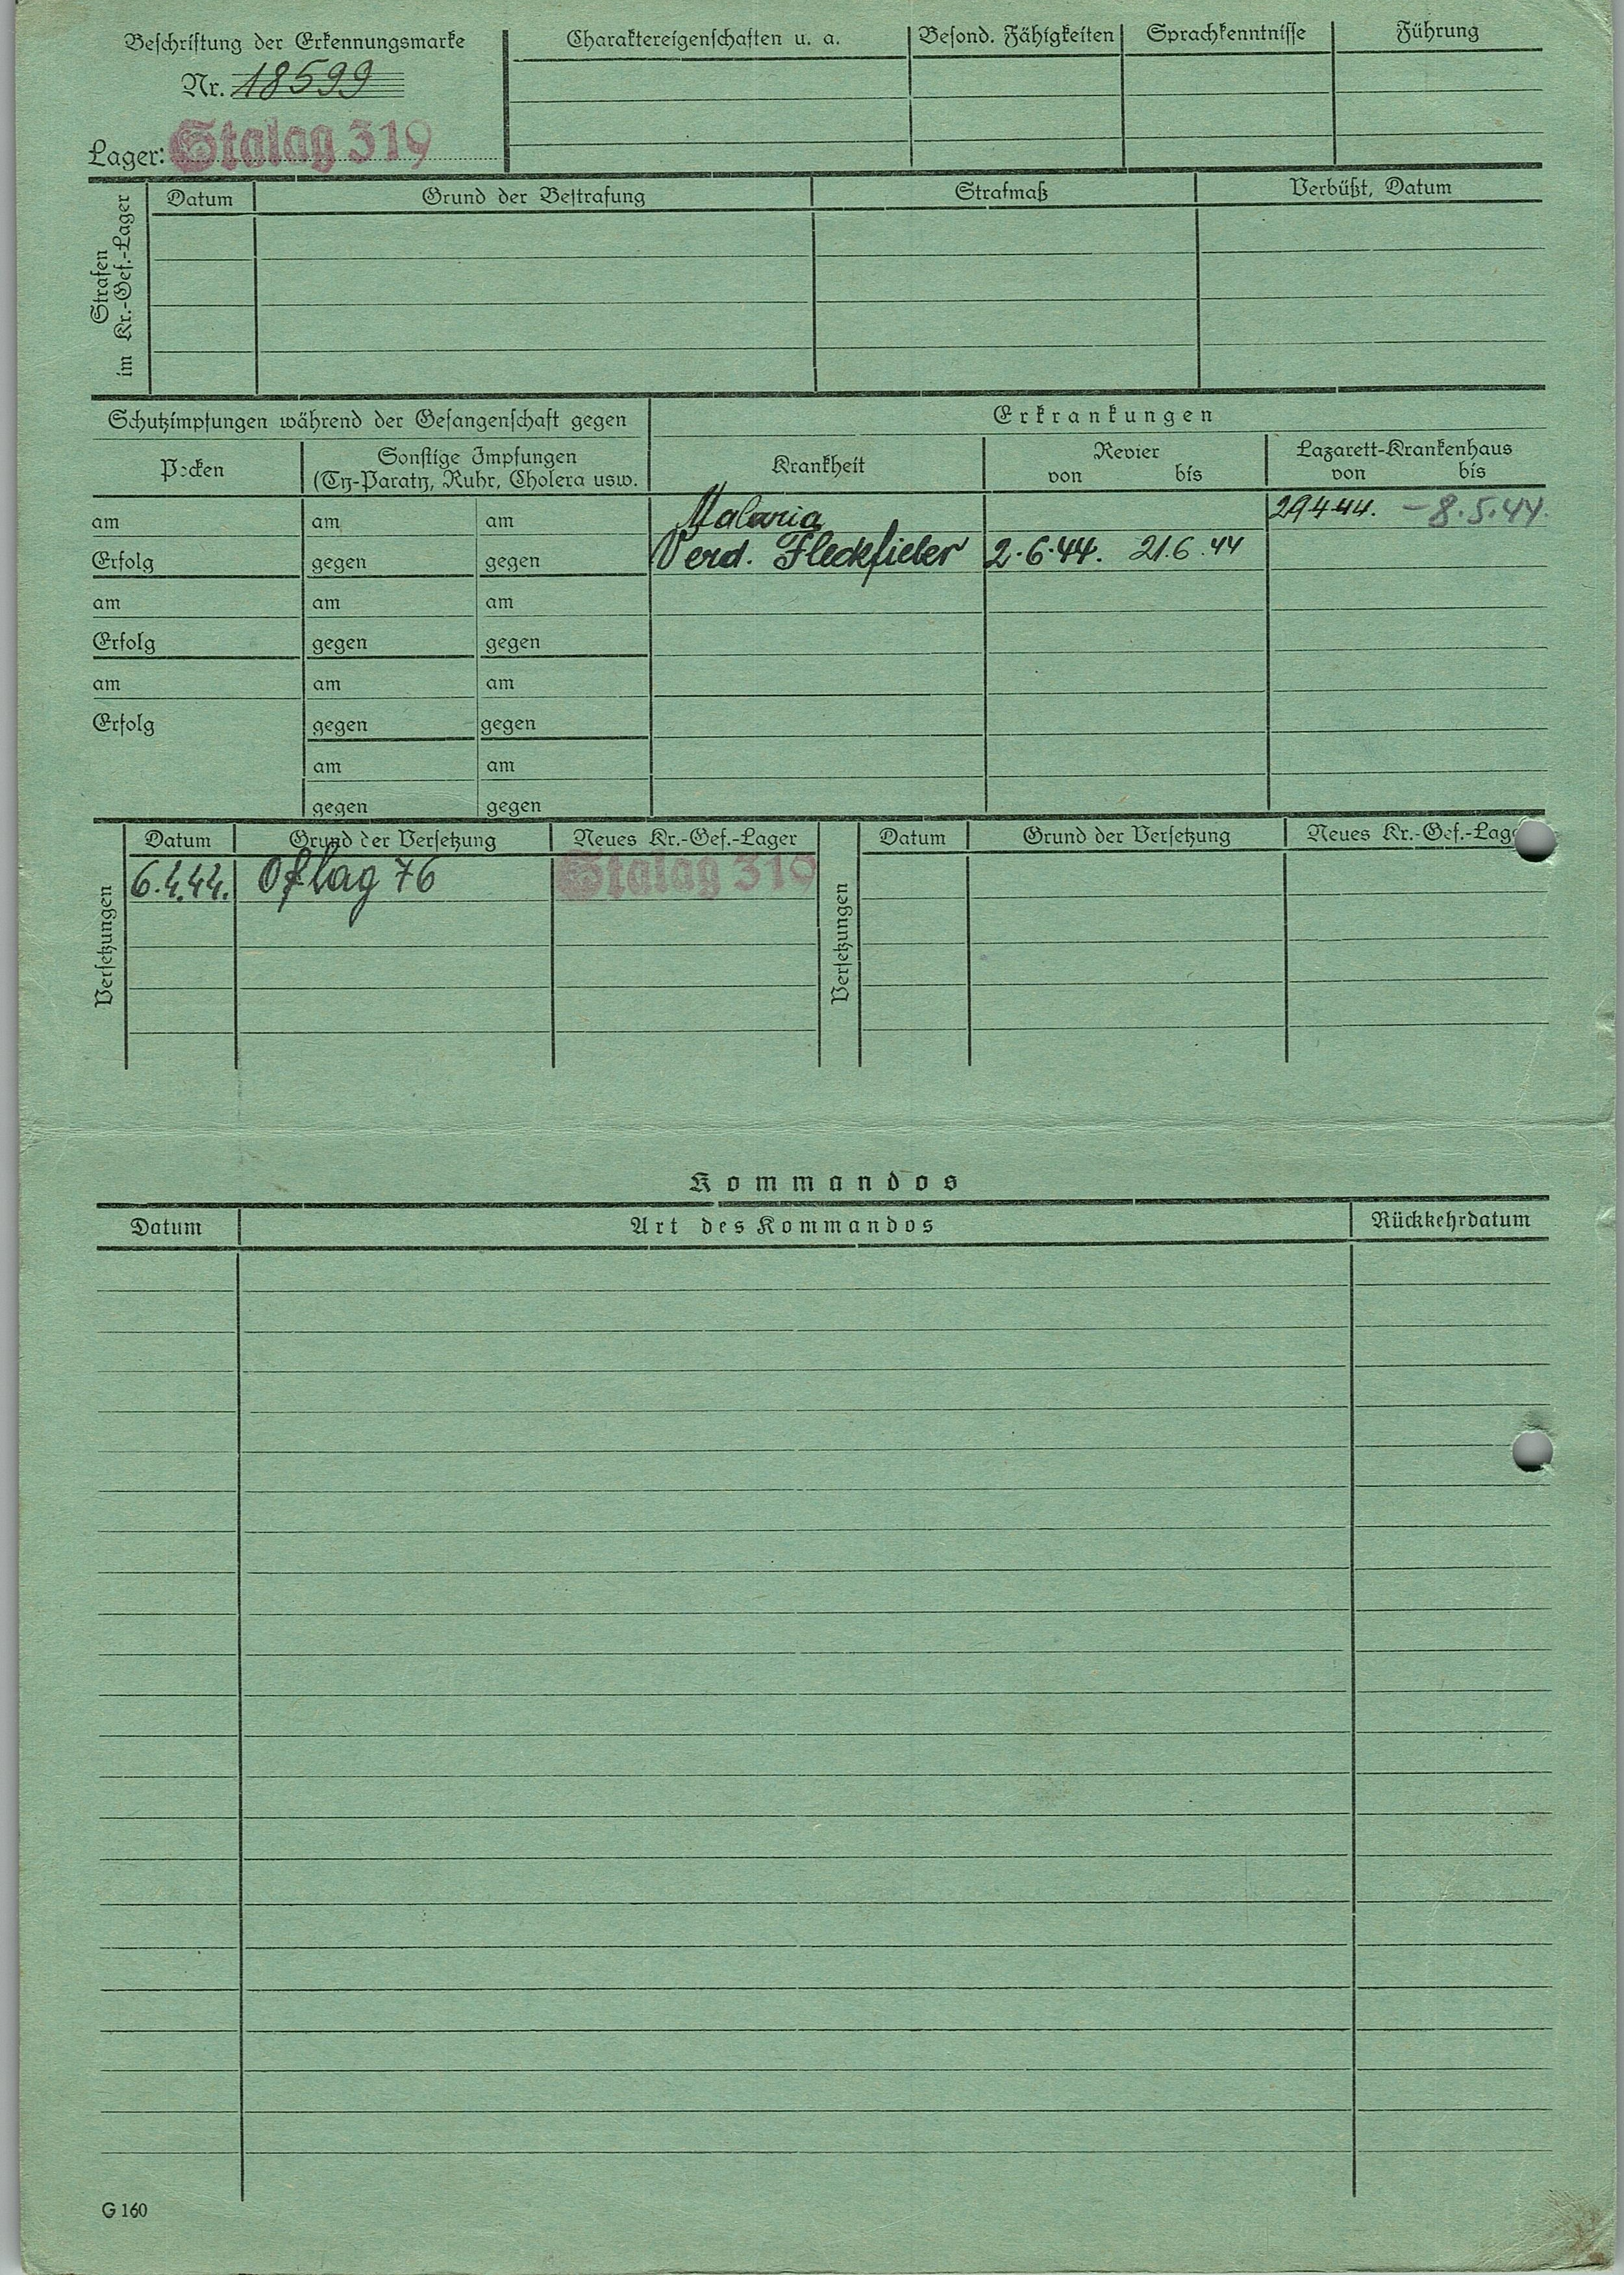 Beschriftung der Erkennungsmarke
Nr. 18599
Lager: Stalag 319
Charaktereigenschaften u. a.
Besond. Fähigkeiten
Sprachkenntnisse
Führung
Strafen
im Kr.-Gef.-Lager
Datum
Grund der Bestrafung
Strafmaß
Verbüßt, Datum
Schutzimpfungen während der Gefangenschaft gegen
Erkrankungen
Pocken
Sonstige Impfungen
(Ty-Paraty, Ruhr, Cholera usw.
Krankheit
Revier
von bis
Lazarett-Krankenhaus
von bis
am am am Malaria 29.4.44. - 8.5.44.
Erfolg gegen gegen Verd. Fleckfieber 2.6.44. 21.6.44
am am am
Erfolg gegen gegen
am am am
Erfolg gegen gegen
am am
gegen gegen
Versetzungen
Datum Grund der Versetzung Neues Kr.-Gef.-Lager
6.4.44. Oflag 76 Stalag 319
Versetzungen
Datum Grund der Versetzung Neues Kr.-Gef.-Lag
Kommandos
Datum Art des Kommandos Rückkehrdatum
G 160